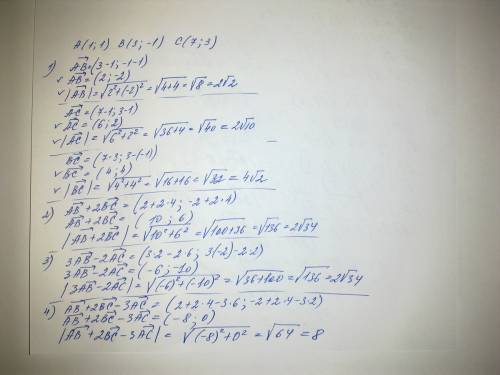 A(1;1) B(3;-1) C(7;3)
1) AB=(3-1;-1-1)
v AB=(2;-2)
v |AB|=√2²+(-2)²=√4+4=√8=2√2
AC=(7-1;3-1)
v AC=(6;2)
v |AC|=√6²+2²=√36+4=√40=2√10
BC=(7-3;3-(-1))
v BC=(4;4)
v |BC|=√4²+4²=√16+16=√32=4√2
2) AB+2BC=(2+2·4;-2+2·4)
AB+2BC=(10;6)
|AB+2BC|=√10²+6²=√100+36=√136=2√34
3) 3AB-2AC=(3·2-2·6;3(-2)-2·2)
3AB-2AC=(-6;-10)
|3AB-2AC|=√(-6)²+(-10)²=√36+100=√136=2√34
4) AB+2BC-3AC=(2+2·4-3·6;-2+2·4-3·2)
AB+2BC-3AC=(-8;0)
|AB+2BC-3AC|=√(-8)²+0²=√64=8